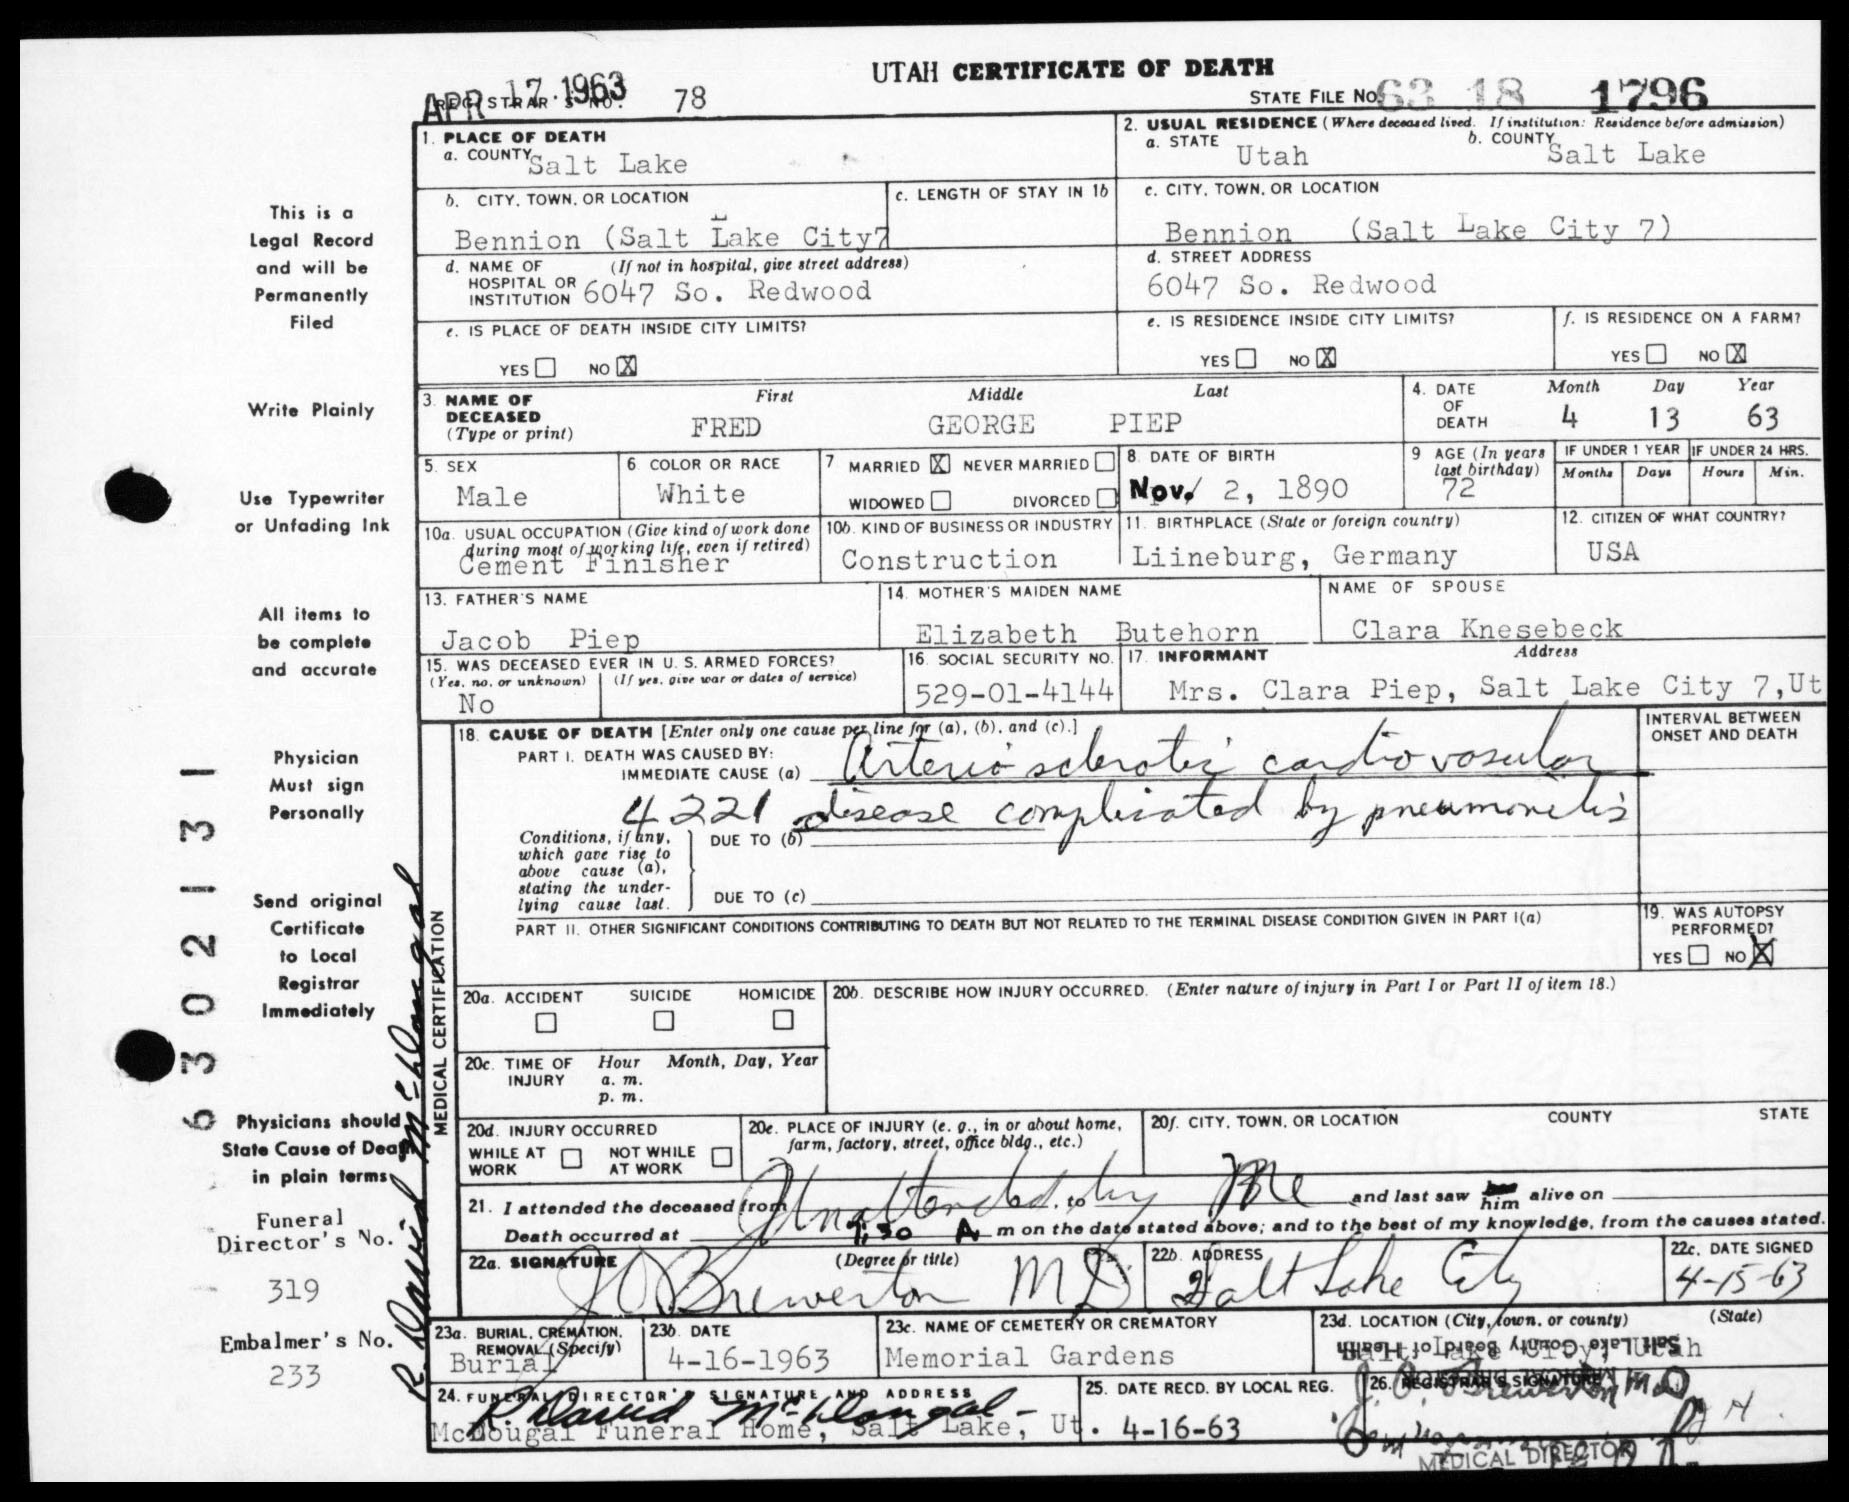 UTAH CERTIFICATE OF DEATH
APR 17 1963
REGISTRAR'S NO. 78
STATE FILE NO. 63 18 1796
1. PLACE OF DEATH
a. COUNTY Salt Lake
2. USUAL RESIDENCE (Where deceased lived. If institution: Residence before admission)
a. STATE Utah b. COUNTY Salt Lake
b. CITY, TOWN, OR LOCATION
Bennion (Salt Lake City7
c. LENGTH OF STAY IN 1b
c. CITY, TOWN, OR LOCATION
Bennion (Salt Lake City 7)
d. NAME OF HOSPITAL OR INSTITUTION (If not in hospital, give street address)
6047 So. Redwood
d. STREET ADDRESS
6047 So. Redwood
e. IS PLACE OF DEATH INSIDE CITY LIMITS?
YES NO X
e. IS RESIDENCE INSIDE CITY LIMITS?
YES NO X
f. IS RESIDENCE ON A FARM?
YES NO X
3. NAME OF DECEASED (Type or print)
First Middle Last
FRED GEORGE PIEP
4. DATE OF DEATH
Month Day Year
4 13 63
5. SEX
Male
6 COLOR OR RACE
White
7 MARRIED X NEVER MARRIED
WIDOWED DIVORCED
8. DATE OF BIRTH
Nov. 2, 1890
9 AGE (In years last birthday)
72
IF UNDER 1 YEAR
Months Days
IF UNDER 24 HRS.
Hours Min.
10a. USUAL OCCUPATION (Give kind of work done during most of working life, even if retired)
Cement Finisher
10b. KIND OF BUSINESS OR INDUSTRY
Construction
11. BIRTHPLACE (State or foreign country)
Liineburg, Germany
12. CITIZEN OF WHAT COUNTRY?
USA
13. FATHER'S NAME
Jacob Piep
14. MOTHER'S MAIDEN NAME
Elizabeth Butehorn
NAME OF SPOUSE
Clara Knesebeck
15. WAS DECEASED EVER IN U. S. ARMED FORCES?
(Yes, no, or unknown) (If yes, give war or dates of service)
No
16. SOCIAL SECURITY NO.
529-01-4144
17. INFORMANT Address
Mrs. Clara Piep, Salt Lake City 7,Ut
18. CAUSE OF DEATH [Enter only one cause per line for (a), (b), and (c).]
INTERVAL BETWEEN ONSET AND DEATH
PART I. DEATH WAS CAUSED BY:
IMMEDIATE CAUSE (a) Arterio sclerotic cardio vascular
4221 disease complicated by pneumonitis
Conditions, if any, which gave rise to above cause (a), stating the underlying cause last.
DUE TO (b)
DUE TO (c)
PART II. OTHER SIGNIFICANT CONDITIONS CONTRIBUTING TO DEATH BUT NOT RELATED TO THE TERMINAL DISEASE CONDITION GIVEN IN PART I(a)
19. WAS AUTOPSY PERFORMED?
YES NO X
MEDICAL CERTIFICATION
20a. ACCIDENT SUICIDE HOMICIDE
20b. DESCRIBE HOW INJURY OCCURRED. (Enter nature of injury in Part I or Part II of item 18.)
20c. TIME OF INJURY
Hour Month, Day, Year
a. m.
p. m.
20d. INJURY OCCURRED
WHILE AT WORK NOT WHILE AT WORK
20e. PLACE OF INJURY (e. g., in or about home, farm, factory, street, office bldg., etc.)
20f. CITY, TOWN, OR LOCATION COUNTY STATE
21. I attended the deceased from Unattended by Me and last saw him alive on
Death occurred at 7:30 A m on the date stated above; and to the best of my knowledge, from the causes stated.
22a. SIGNATURE (Degree or title)
J O Brewerton MD
22b. ADDRESS
Salt Lake City
22c. DATE SIGNED
4-15-63
23a. BURIAL, CREMATION, REMOVAL (Specify)
Burial
23b. DATE
4-16-1963
23c. NAME OF CEMETERY OR CREMATORY
Memorial Gardens
23d. LOCATION (City, town, or county) (State)
Salt Lake City, Utah
Salt Lake County Board of Health
24. FUNERAL DIRECTOR'S SIGNATURE AND ADDRESS
R David McDougal
McDougal Funeral Home, Salt Lake, Ut.
25. DATE RECD. BY LOCAL REG.
4-16-63
26. REGISTRAR'S SIGNATURE
MEDICAL DIRECTOR
This is a
Legal Record
and will be
Permanently
Filed
Write Plainly
Use Typewriter
or Unfading Ink
All items to
be complete
and accurate
Physician
Must sign
Personally
Send original
Certificate
to Local
Registrar
Immediately
Physicians should
State Cause of Death
in plain terms
Funeral
Director's No.
319
Embalmer's No.
233
6302131
R David McDougal